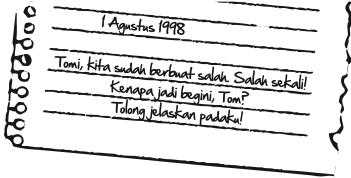 1 Agustus 1998
Tomi, kita sudah berbuat salah. Salah sekali!
Kenapa jadi begini, Tom?
Tolong jelaskan padaku!